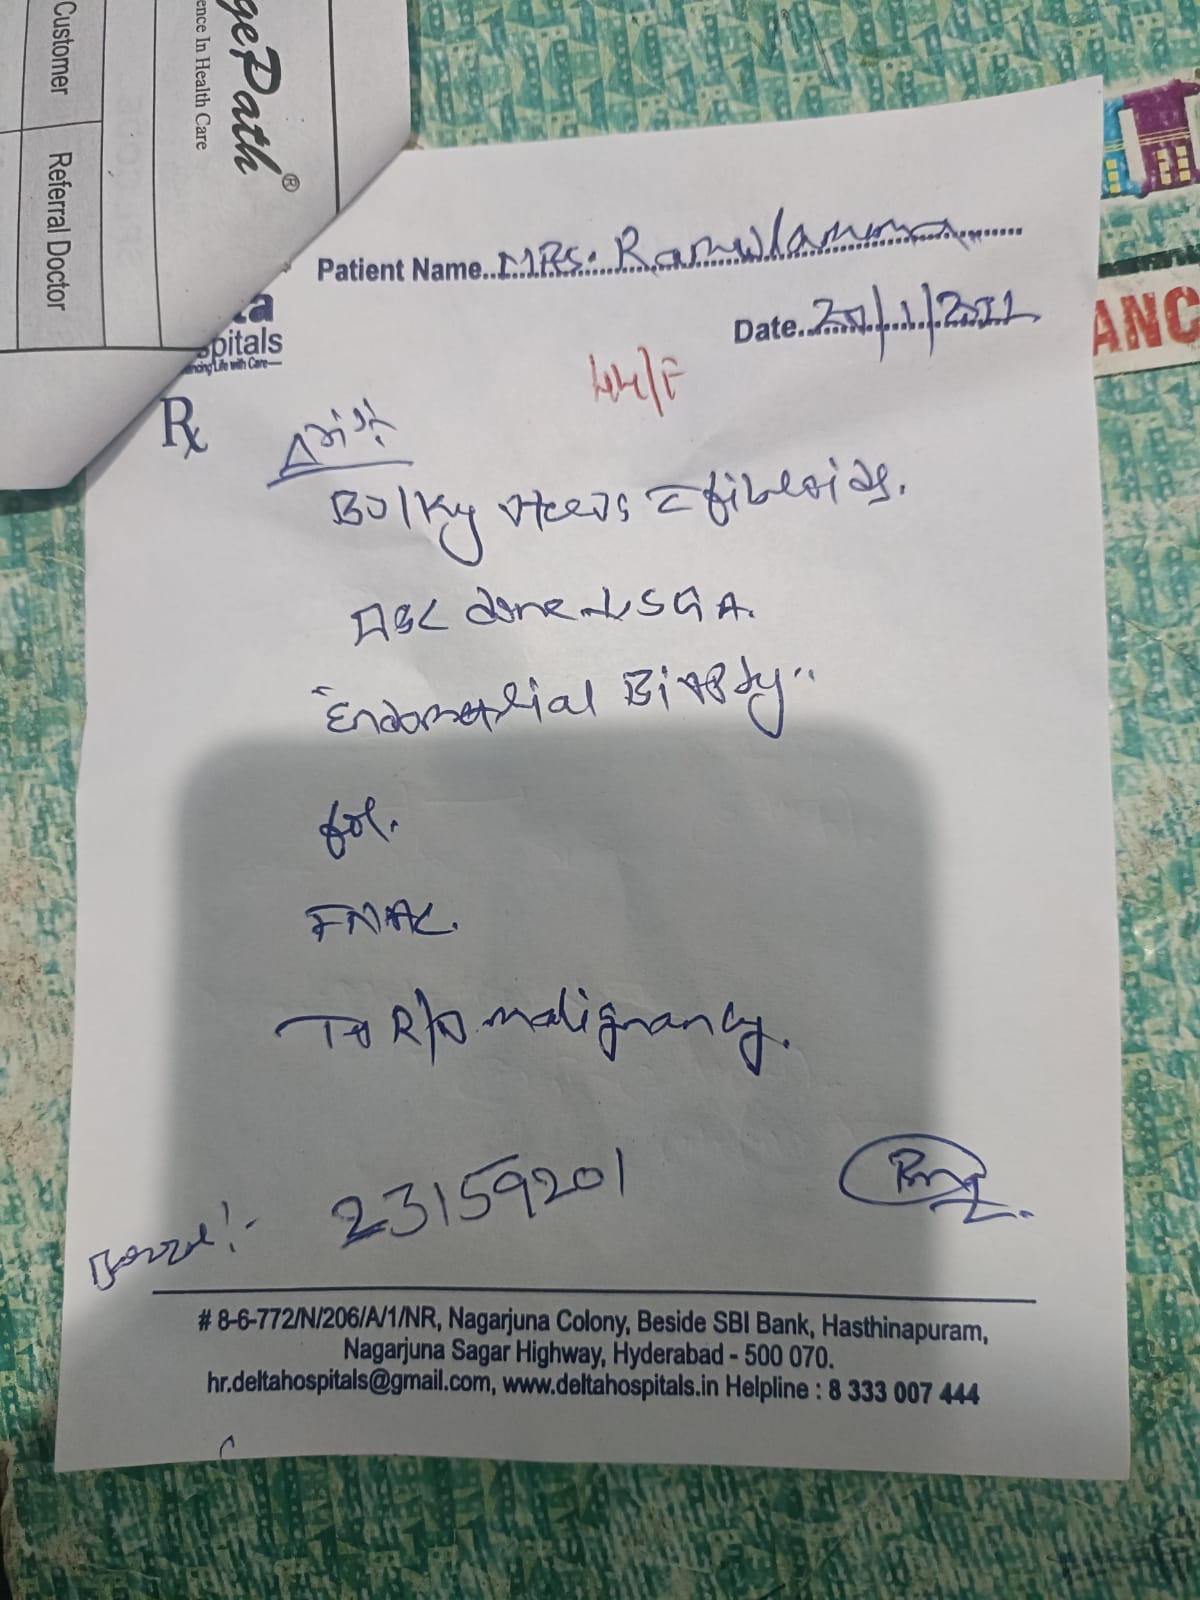 gePath®
ence In Health Care
Customer
Referral Doctor
ta
spitals
ncing Life with Care—
Patient Name..MRS. Ramulamma
Date..20/1/2022
44/F
Rx
Bulky uterus c fibroids.
D&C done ↓ SGA.
"Endometrial Biopsy"
for.
FNAC.
To R/o malignancy.
23159201
# 8-6-772/N/206/A/1/NR, Nagarjuna Colony, Beside SBI Bank, Hasthinapuram,
Nagarjuna Sagar Highway, Hyderabad - 500 070.
hr.deltahospitals@gmail.com, www.deltahospitals.in Helpline : 8 333 007 444
ANC